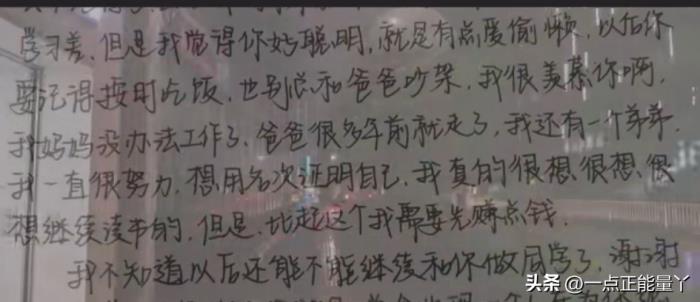 学习差，但是我觉得你好聪明，就是有点爱偷懒，以后你
要记得按时吃饭，也别总和爸爸吵架，我很羡慕你啊，
我妈妈没办法工作了，爸爸很多年前就走了，我还有一个弟弟，
我一直很努力，想用名次证明自己，我真的很想，很想，很
想继续读书的，但是，比起这个我需要先赚点钱．
我不知道以后还能不能继续和你做同学了，谢谢
头条 @一点正能量丫